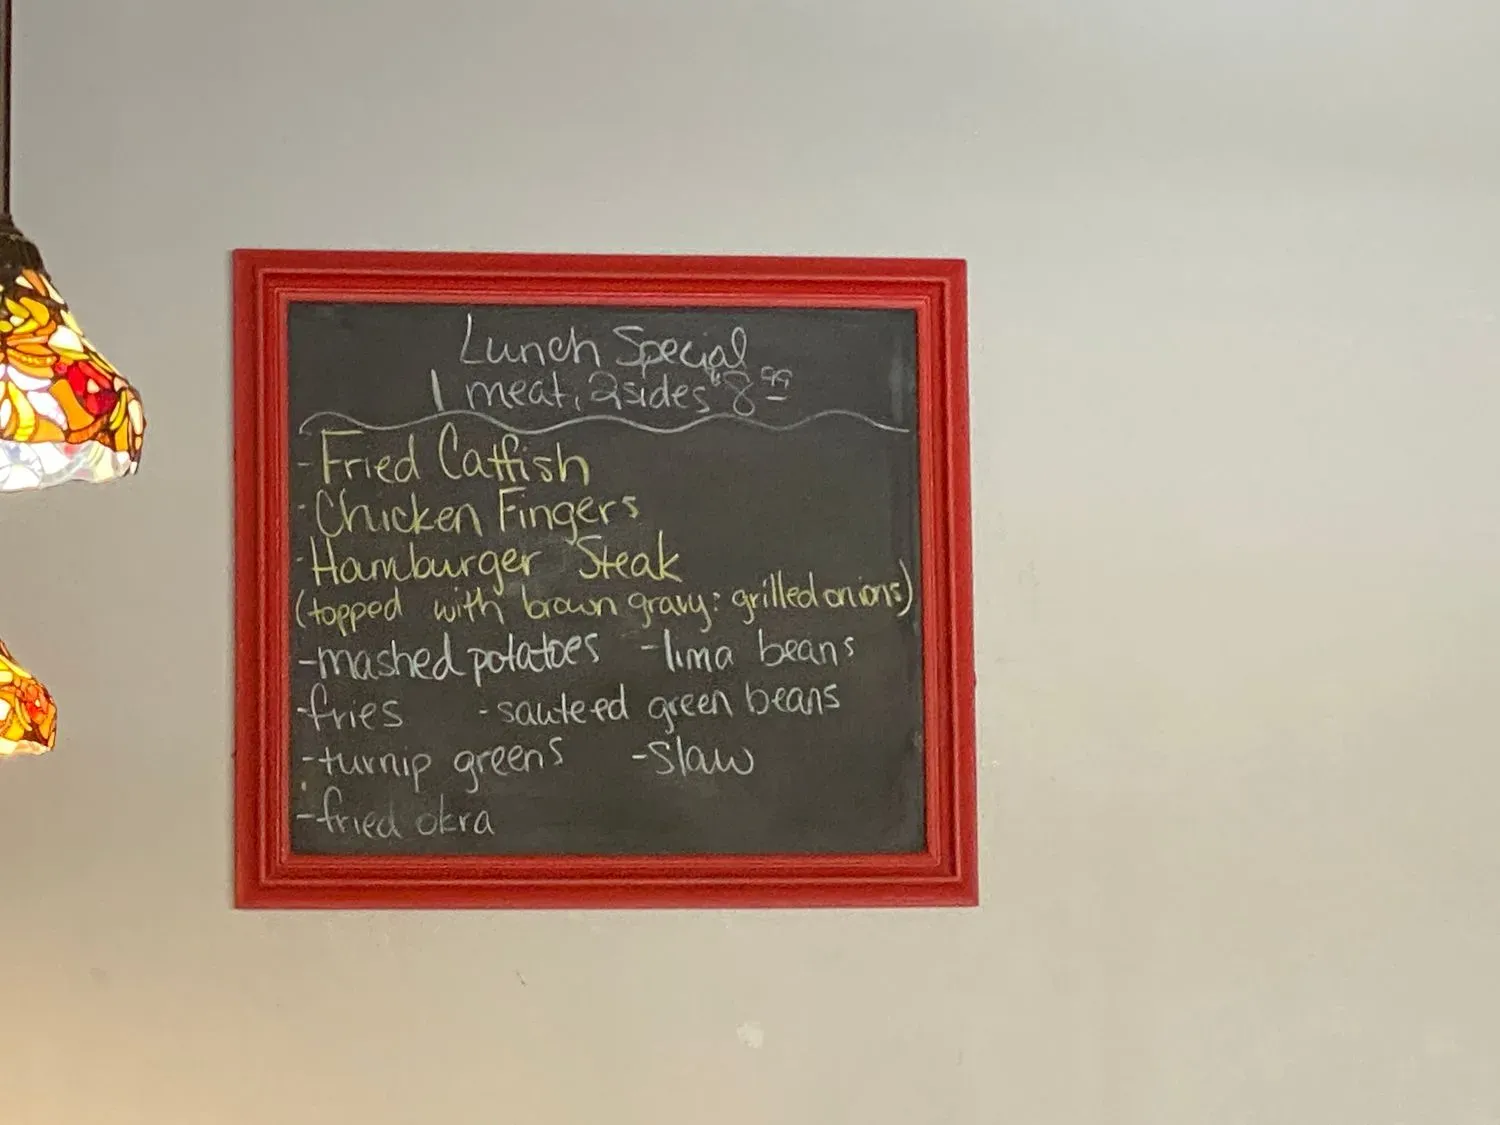 Lunch Special
1 meat, 2 sides $8.99
- Fried Catfish
- Chicken Fingers
- Hamburger Steak
(topped with brown gravy: grilled onions)
-mashed potatoes -lima beans
-fries -sauteed green beans
-turnip greens -slaw
-fried okra